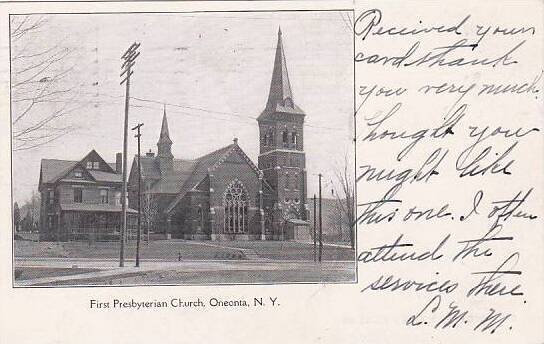 Received your
card thank
you very much.
thought you
might like
this one. I often
attend the
services there.
L. M. M.
First Presbyterian Church, Oneonta, N. Y.